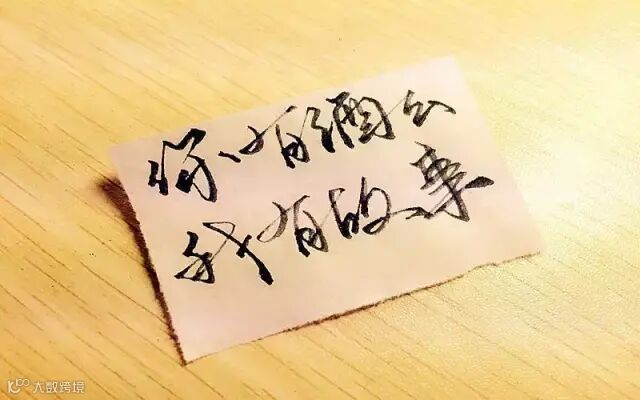 你有酒么
我有故事
大数跨境